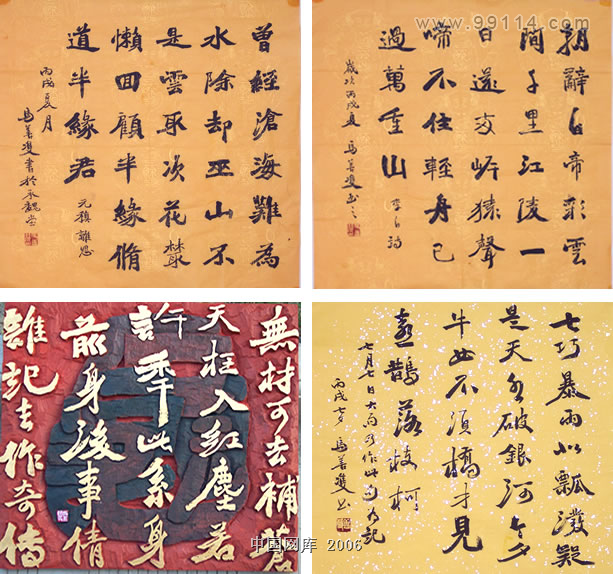 曾經滄海難為
水除却巫山不
是雲取次花叢
懶回顧半緣脩
道半緣君
元稹離思
丙戌夏月
馬善雙書於承魏堂
www.99114.com
朝辭白帝彩雲
間千里江陵一
日還兩岸猿聲
啼不住輕舟已
過萬重山
李白詩
歲次丙戌夏馬善雙書之
無材可去補蒼
天枉入紅塵若
許年此系身
前身後事倩
誰記去作奇傳
七巧暴雨似瓢潑疑
是天公破銀河今夕
牛女不須橋才見
喜鵲落枝柯
七月七日大雨乃作此句為記
丙戌七夕馬善雙書
中国图库 2006